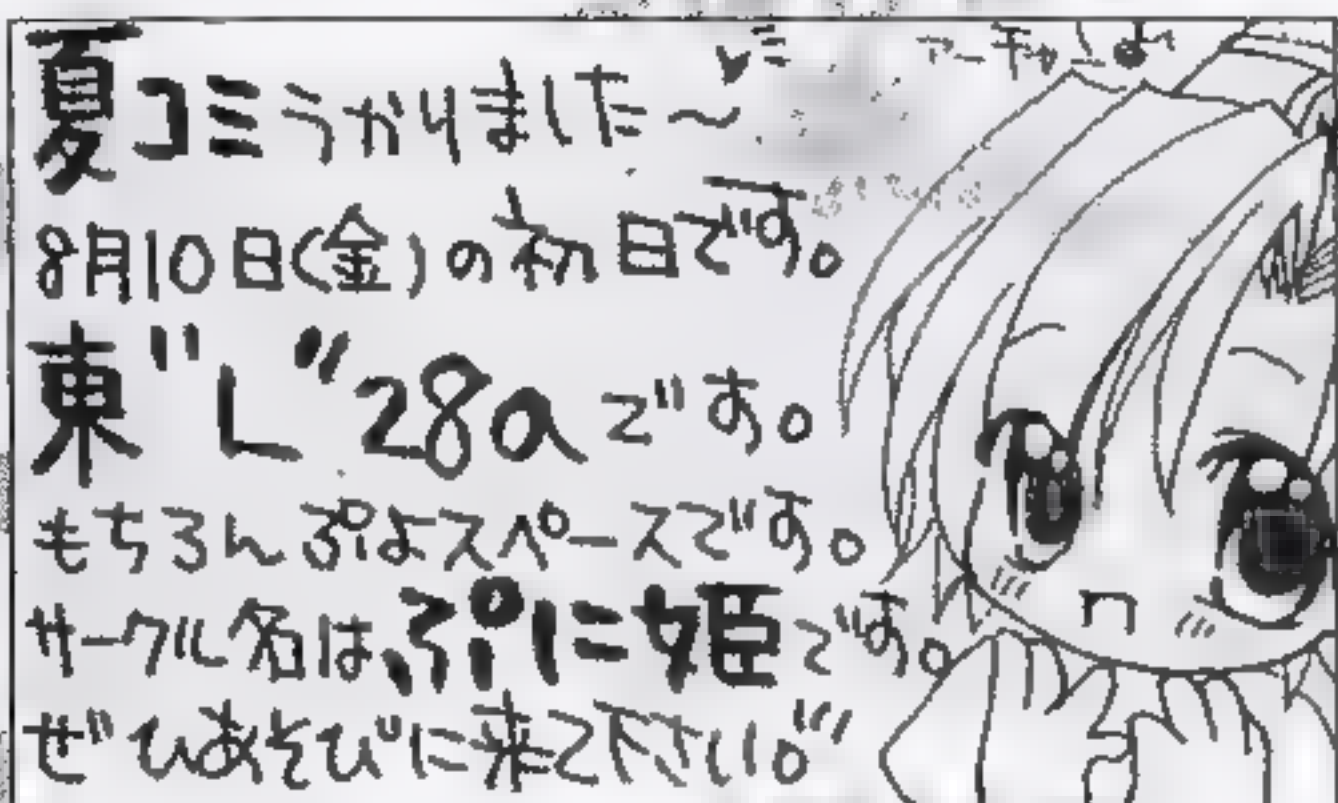 夏コミうかりました〜♥
アーチャ
8月10日(金)の初日です。
東"L"28aです。
もちろんぷよスペースです。
サークル名はぷに姫です。
ぜひあそびに来て下さい。